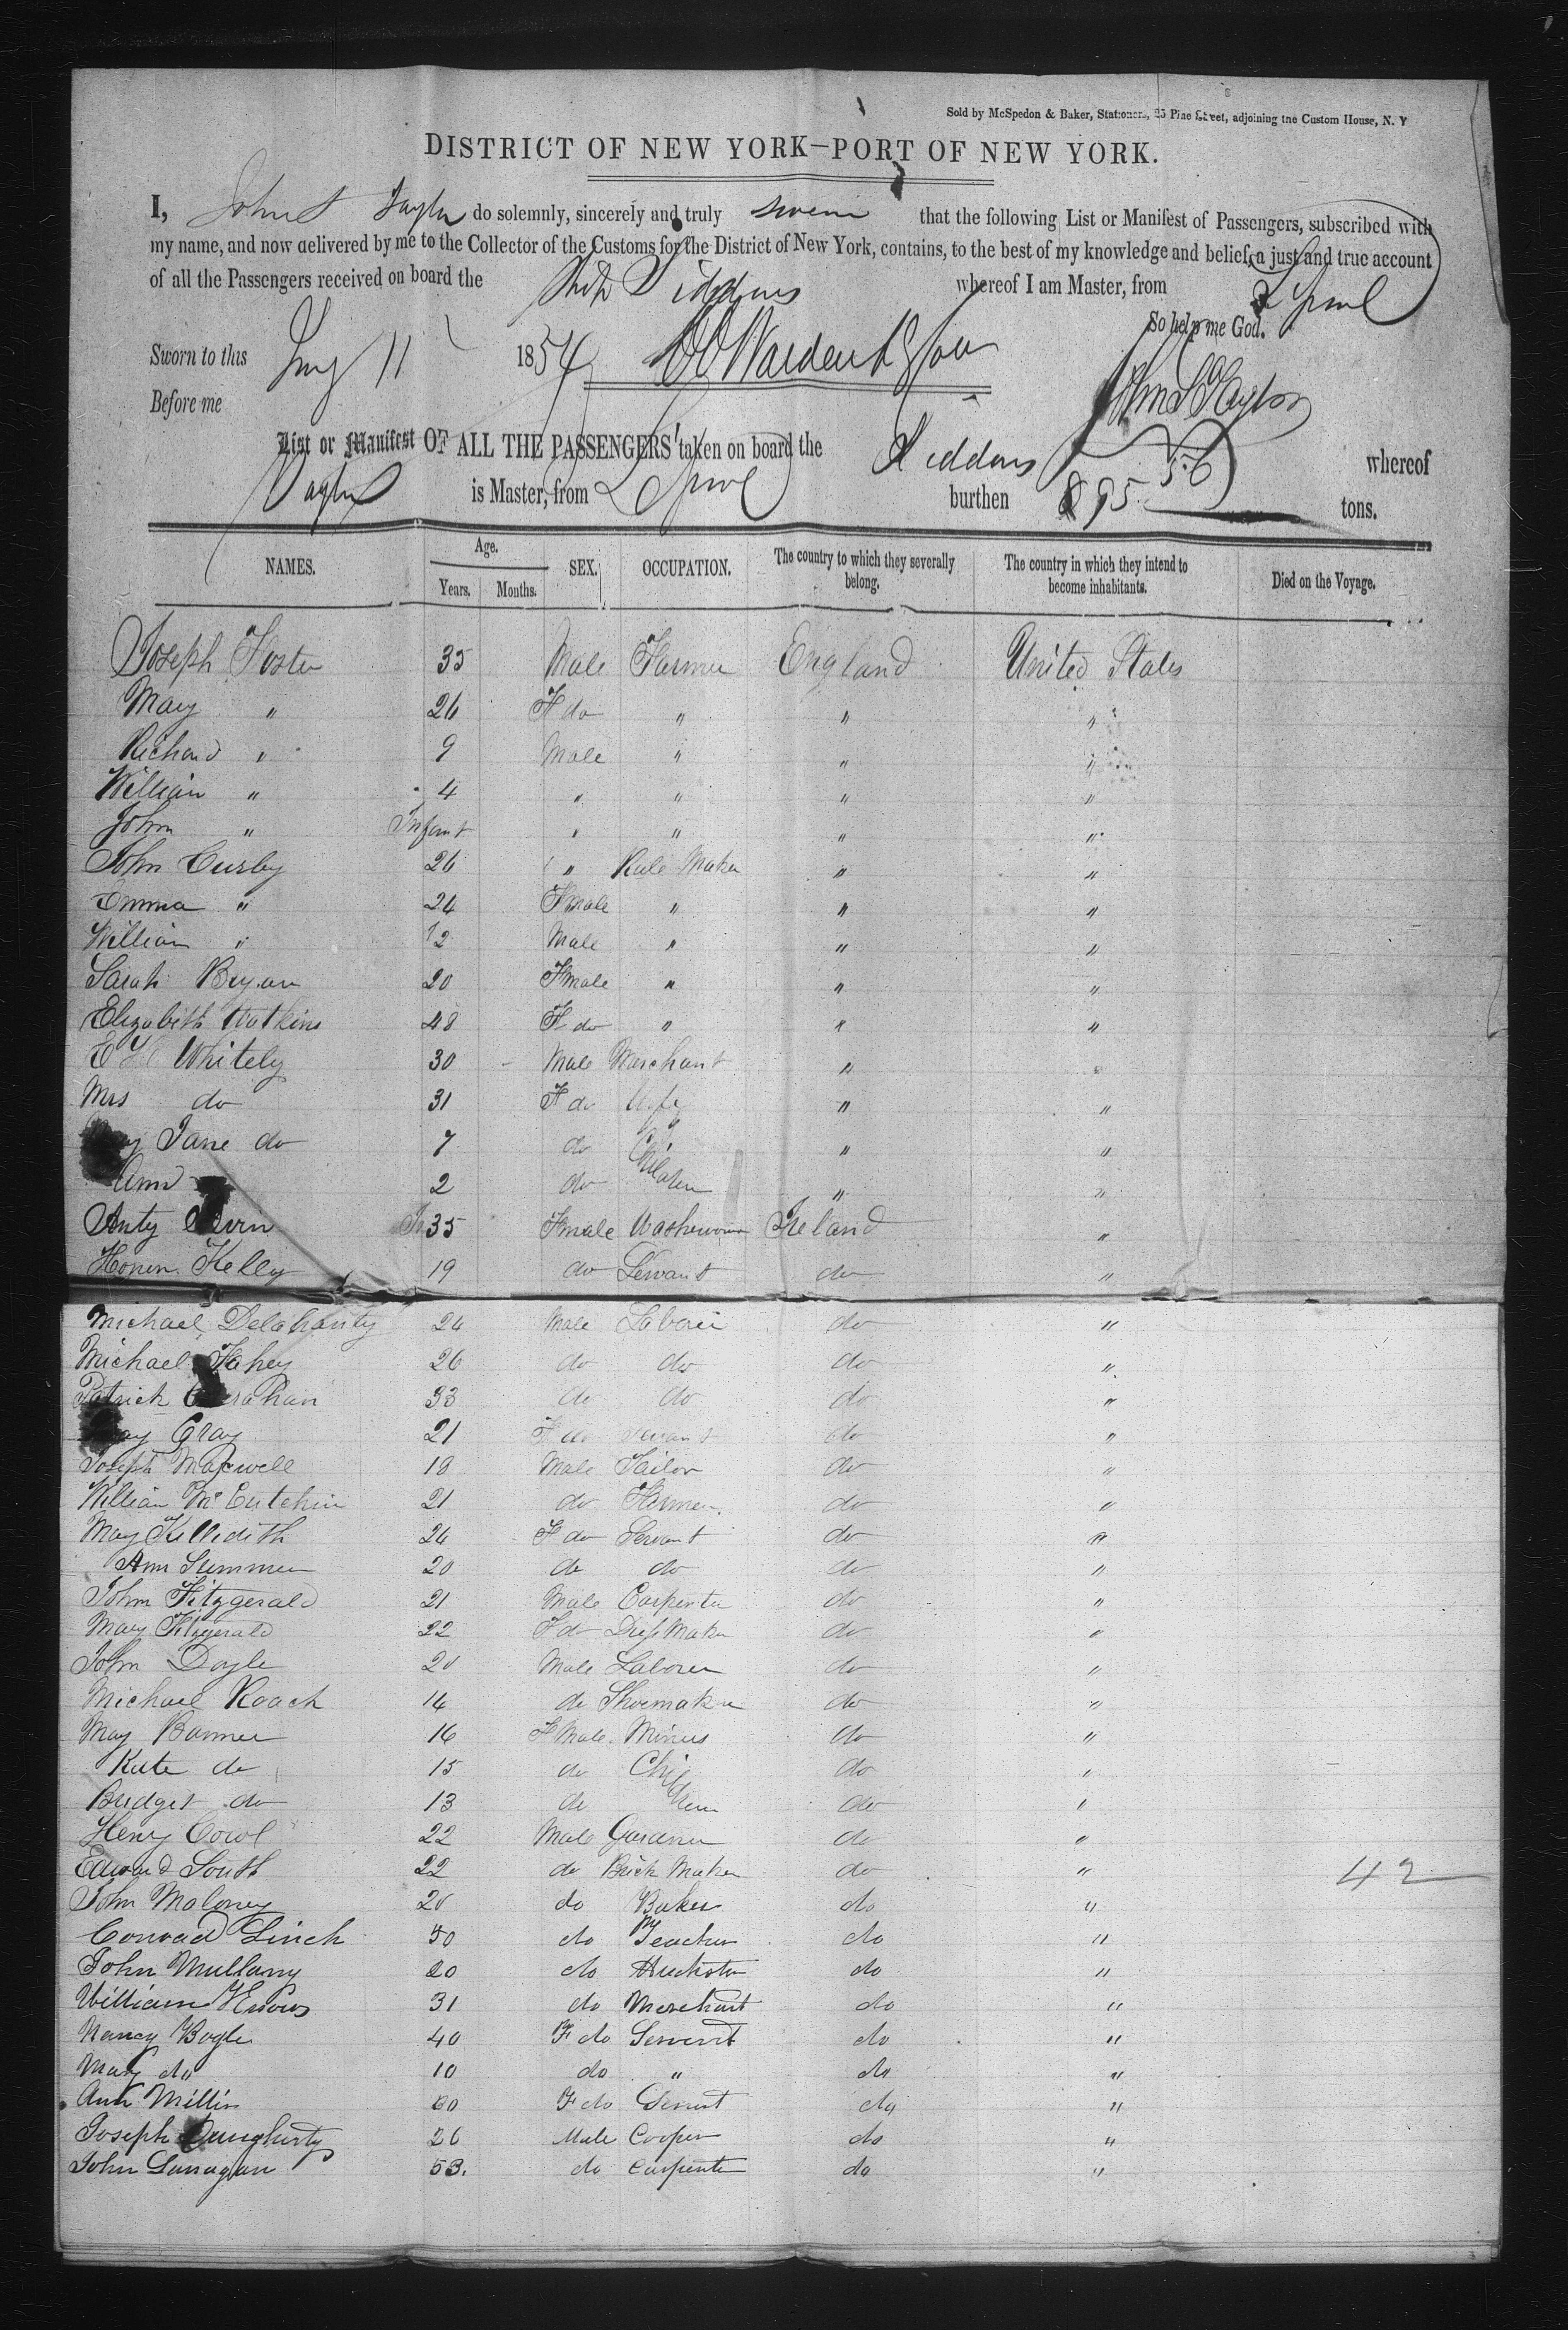 Sold by McSpedon & Baker, Stationers, 25 Pine Street, adjoining the Custom House, N. Y
DISTRICT OF NEW YORK—PORT OF NEW YORK.
I, John S Taylor do solemnly, sincerely and truly swear that the following List or Manifest of Passengers, subscribed with
my name, and now delivered by me to the Collector of the Customs for the District of New York, contains, to the best of my knowledge and belief, a just and true account
of all the Passengers received on board the Ship Siddons whereof I am Master, from Lpool
So help me God.
Sworn to this 11 1854 John S Taylor
Before me
List or Manifest OF ALL THE PASSENGERS taken on board the Siddons whereof
Taylor is Master, from Lpool burthen 895 56 tons.
NAMES. Age. Years. Months. SEX. OCCUPATION. The country to which they severally belong. The country in which they intend to become inhabitants. Died on the Voyage.
Joseph Foster 35 Male Farmer England United States
Mary " 26 F do " " "
Richard " 9 Male " " "
William " 4 " " " "
John " Infant " " " "
John Cursby 26 " Rule Maker " "
Emma " 24 Female " " "
William " 12 Male " " "
Sarah Bryan 20 Female " " "
Elizabeth Watkins 48 F do " " "
E H Whitely 30 Male Merchant " "
Mrs do 31 F do Wife " "
Jane do 7 do Children " "
Ann 2 do " "
Anty 35 Female Washwoman Ireland "
Honor Kelly 19 do Servant do "
Michael Delahanty 24 Male Laborer do "
Michael Fahey 26 do do do "
Patrick 33 do do do "
Gray 21 F do Servant do "
Joseph Maxwell 18 Male Tailor do "
William McCutchin 21 do Farmer do "
May 24 F do Servant do "
Ann Summer 20 do do do "
John Fitzgerald 21 Male Carpenter do "
Mary Fitzgerald 22 F do Dress Maker do "
John Doyle 20 Male Laborer do "
Michael Roach 14 do Shoemaker do "
May 16 F Male Minus do "
Kate do 15 do Children do "
Bridget do 13 do do "
Henry Cowl 22 Male Gardner do "
Edward South 22 do Brick Maker do " 42
John Moloney 20 do Baker do "
Conrad Linch 50 do Teacher do "
John Mullany 20 do Huckster do "
William 31 do Merchant do "
Nancy Bogle 40 F do Servent do "
Mary do 10 do " do "
Ann Millin F do Servent do "
Joseph Daugherty 26 Male Cooper do "
John Lanagan 53. do Carpenter do "